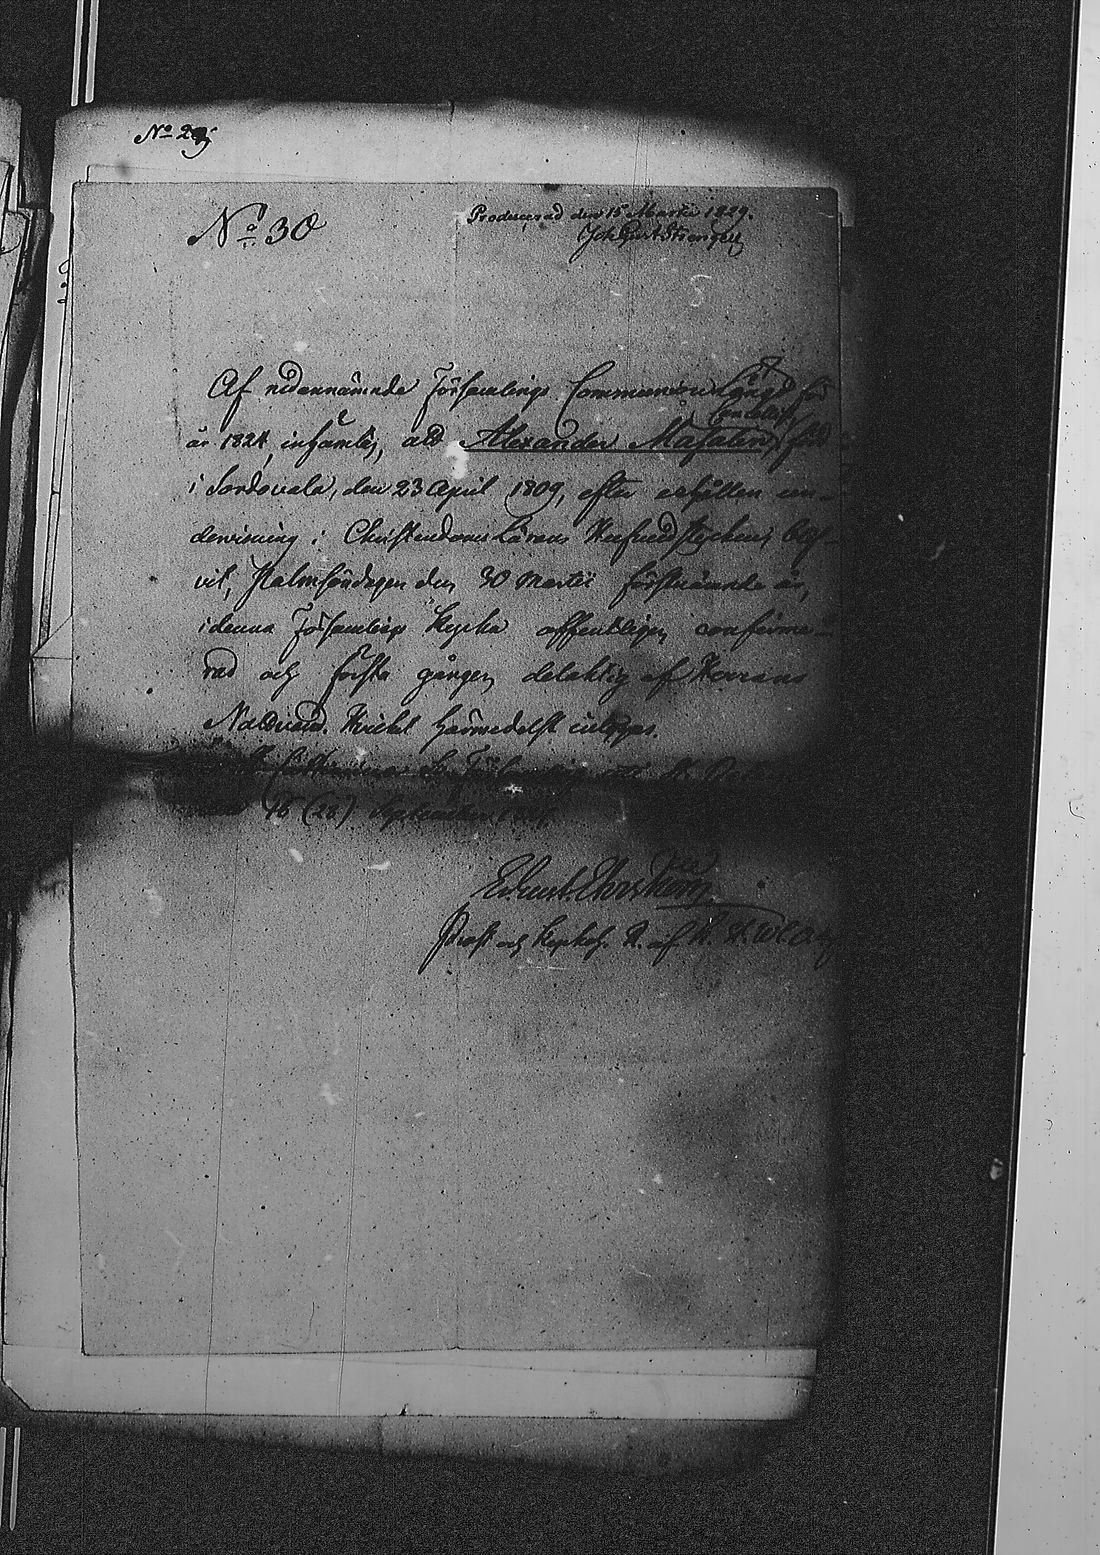 No 29
No 30
Producerad den 15 Martii 1829.
Af nidannämnde Församlings Communion Längd för
år 1824, inhämtas, att Alexander Masalin, född
i Sordovala, den 23 April 1809, efter erhållen un-
dervisning i Christendoms Lärans Hufvudstycken, blif-
vit, Palmsöndagen den 30 Martii förstnämnde år,
i denna Församlings Kyrka offentligen confirme-
rad och första gången delaktig af Herrans
Nattvard. Hvilket härmedelst intygas.
16 (28) September
Prost och Kyrkoh. R. af K.